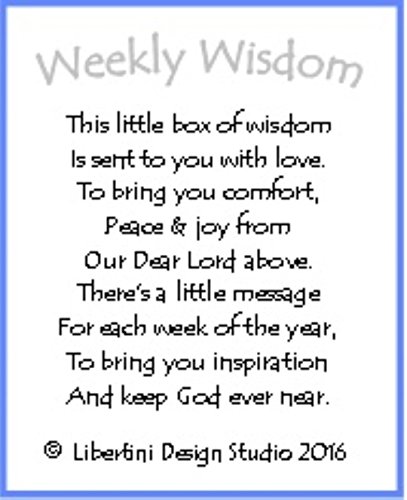 Weekly Wisdom
This little box of wisdom
Is sent to you with love.
To bring you comfort,
Peace & joy from
Our Dear Lord above.
There's a little message
For each week of the year,
To bring you inspiration
And keep God ever near.
© Libertini Design Studio 2016